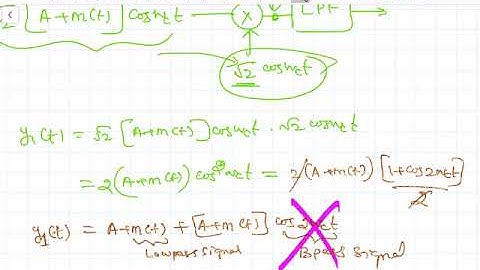 [A+m(t)] cosωct × LPF
√2 cosωct
y1(t) = √2 [A+m(t)] cosωct · √2 cosωct
= 2(A+m(t)) cos²ωct = 2(A+m(t)) [1+cos2ωct] 2
y1(t) = A+m(t) + [A+m(t)] cos2ωct
Lowpass signal Bpass signal